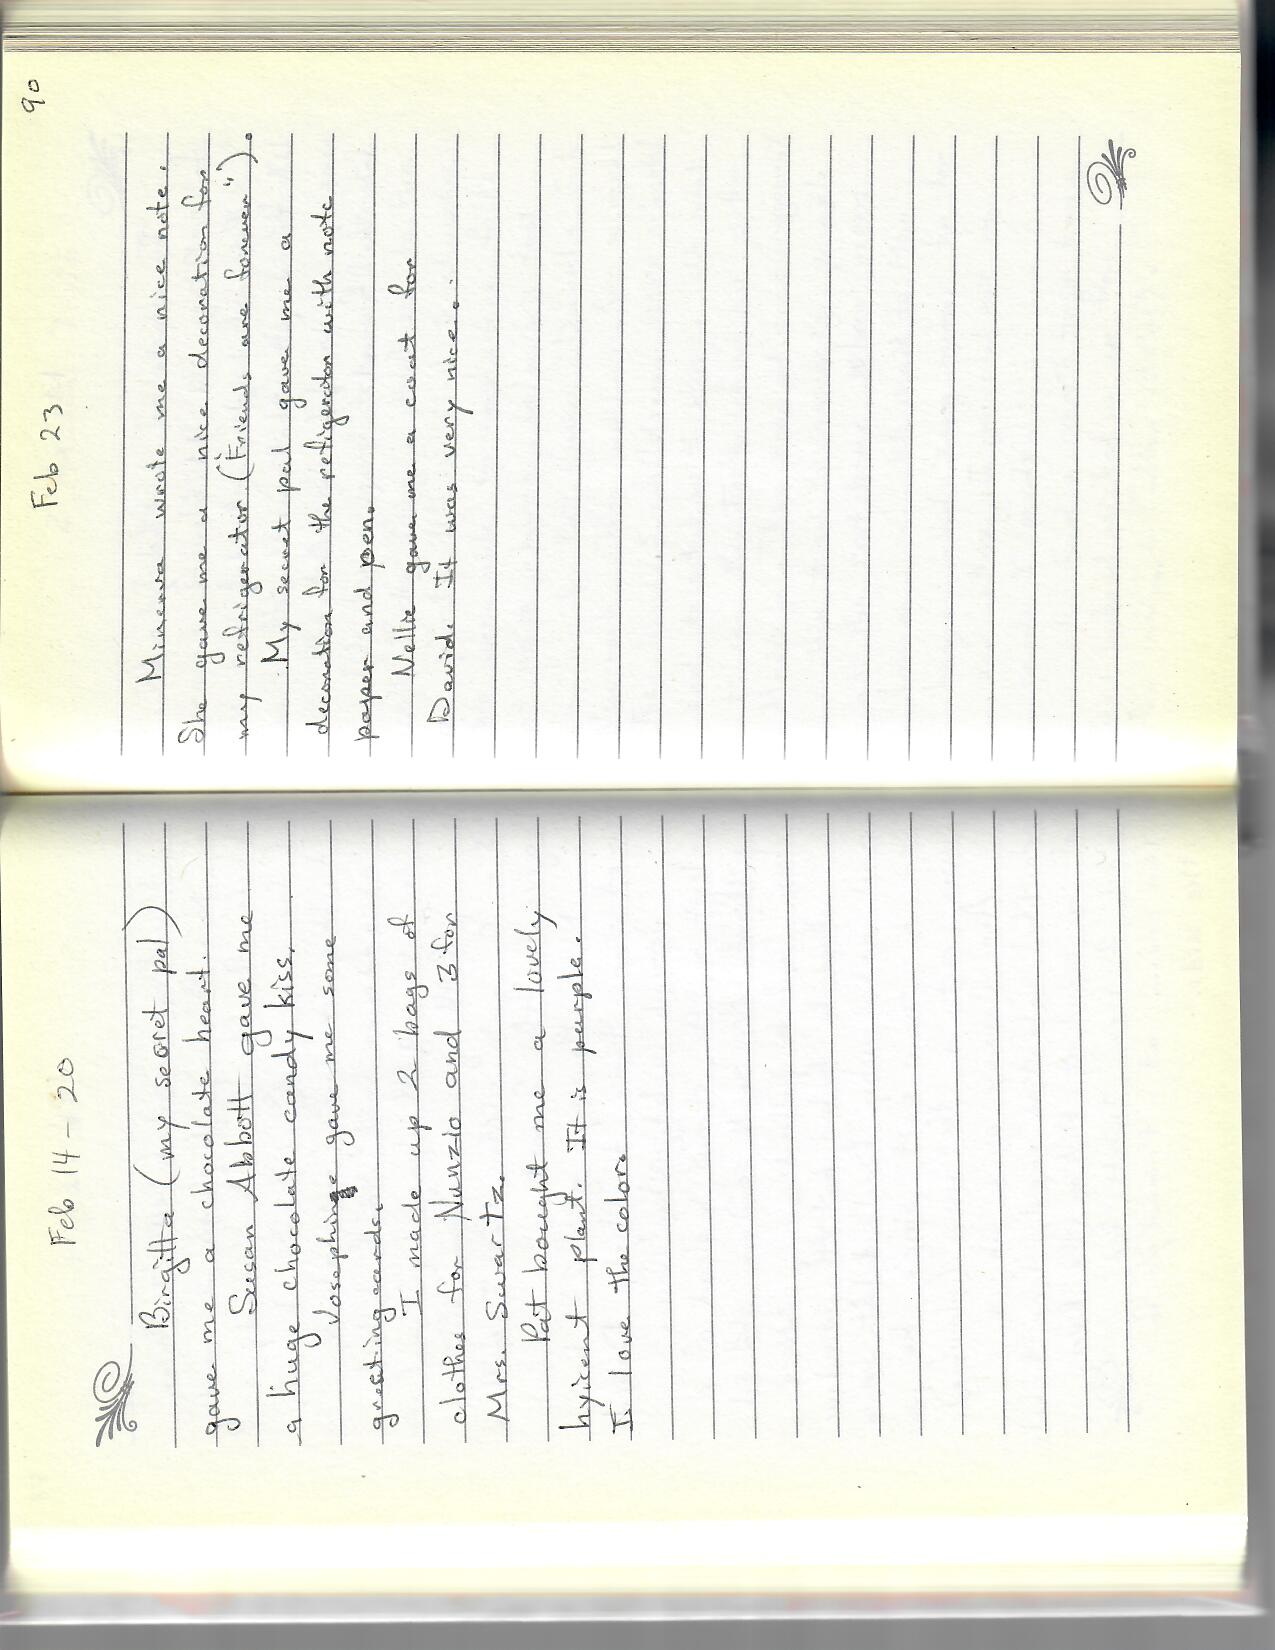 Feb 14 - 20
Birgitta (my secret pal)
gave me a chocolate heart.
Susan Abbott gave me
a huge chocolate candy kiss.
Josephine gave me some
greeting cards.
I made up 2 bags of
clothes for Nunzio and 3 for
Mrs. Swartz.
Pat bought me a lovely
hyicent plant. It is purple.
I love the color.
90
Feb 23
Minerva wrote me a nice note.
She gave me a nice decoration for
my refrigerator ("Friends are forever").
My secret pal gave me a
decoration for the refigerator with note
paper and pen.
Nellie gave me a coat for
David. It was very nice.